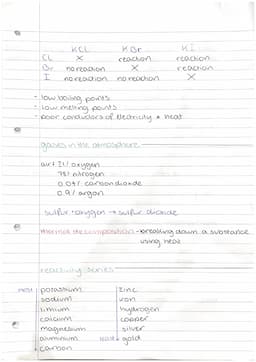 KCl KBr KI
CL X reaction reaction
Br no reaction X reaction
I no reaction no reaction X
- low boiling points
- low melting points
- poor conductors of electricity + heat
gases in the atmosphere
air: 21% oxygen
78% nitrogen
0.04% carbon dioxide
0.9% argon
sulfur + oxygen → sulfur dioxide
thermal decomposition - breaking down a substance
using heat
reactivity series
most potassium zinc
sodium iron
lithium hydrogen
calcium copper
magnesium silver
aluminium least gold
carbon